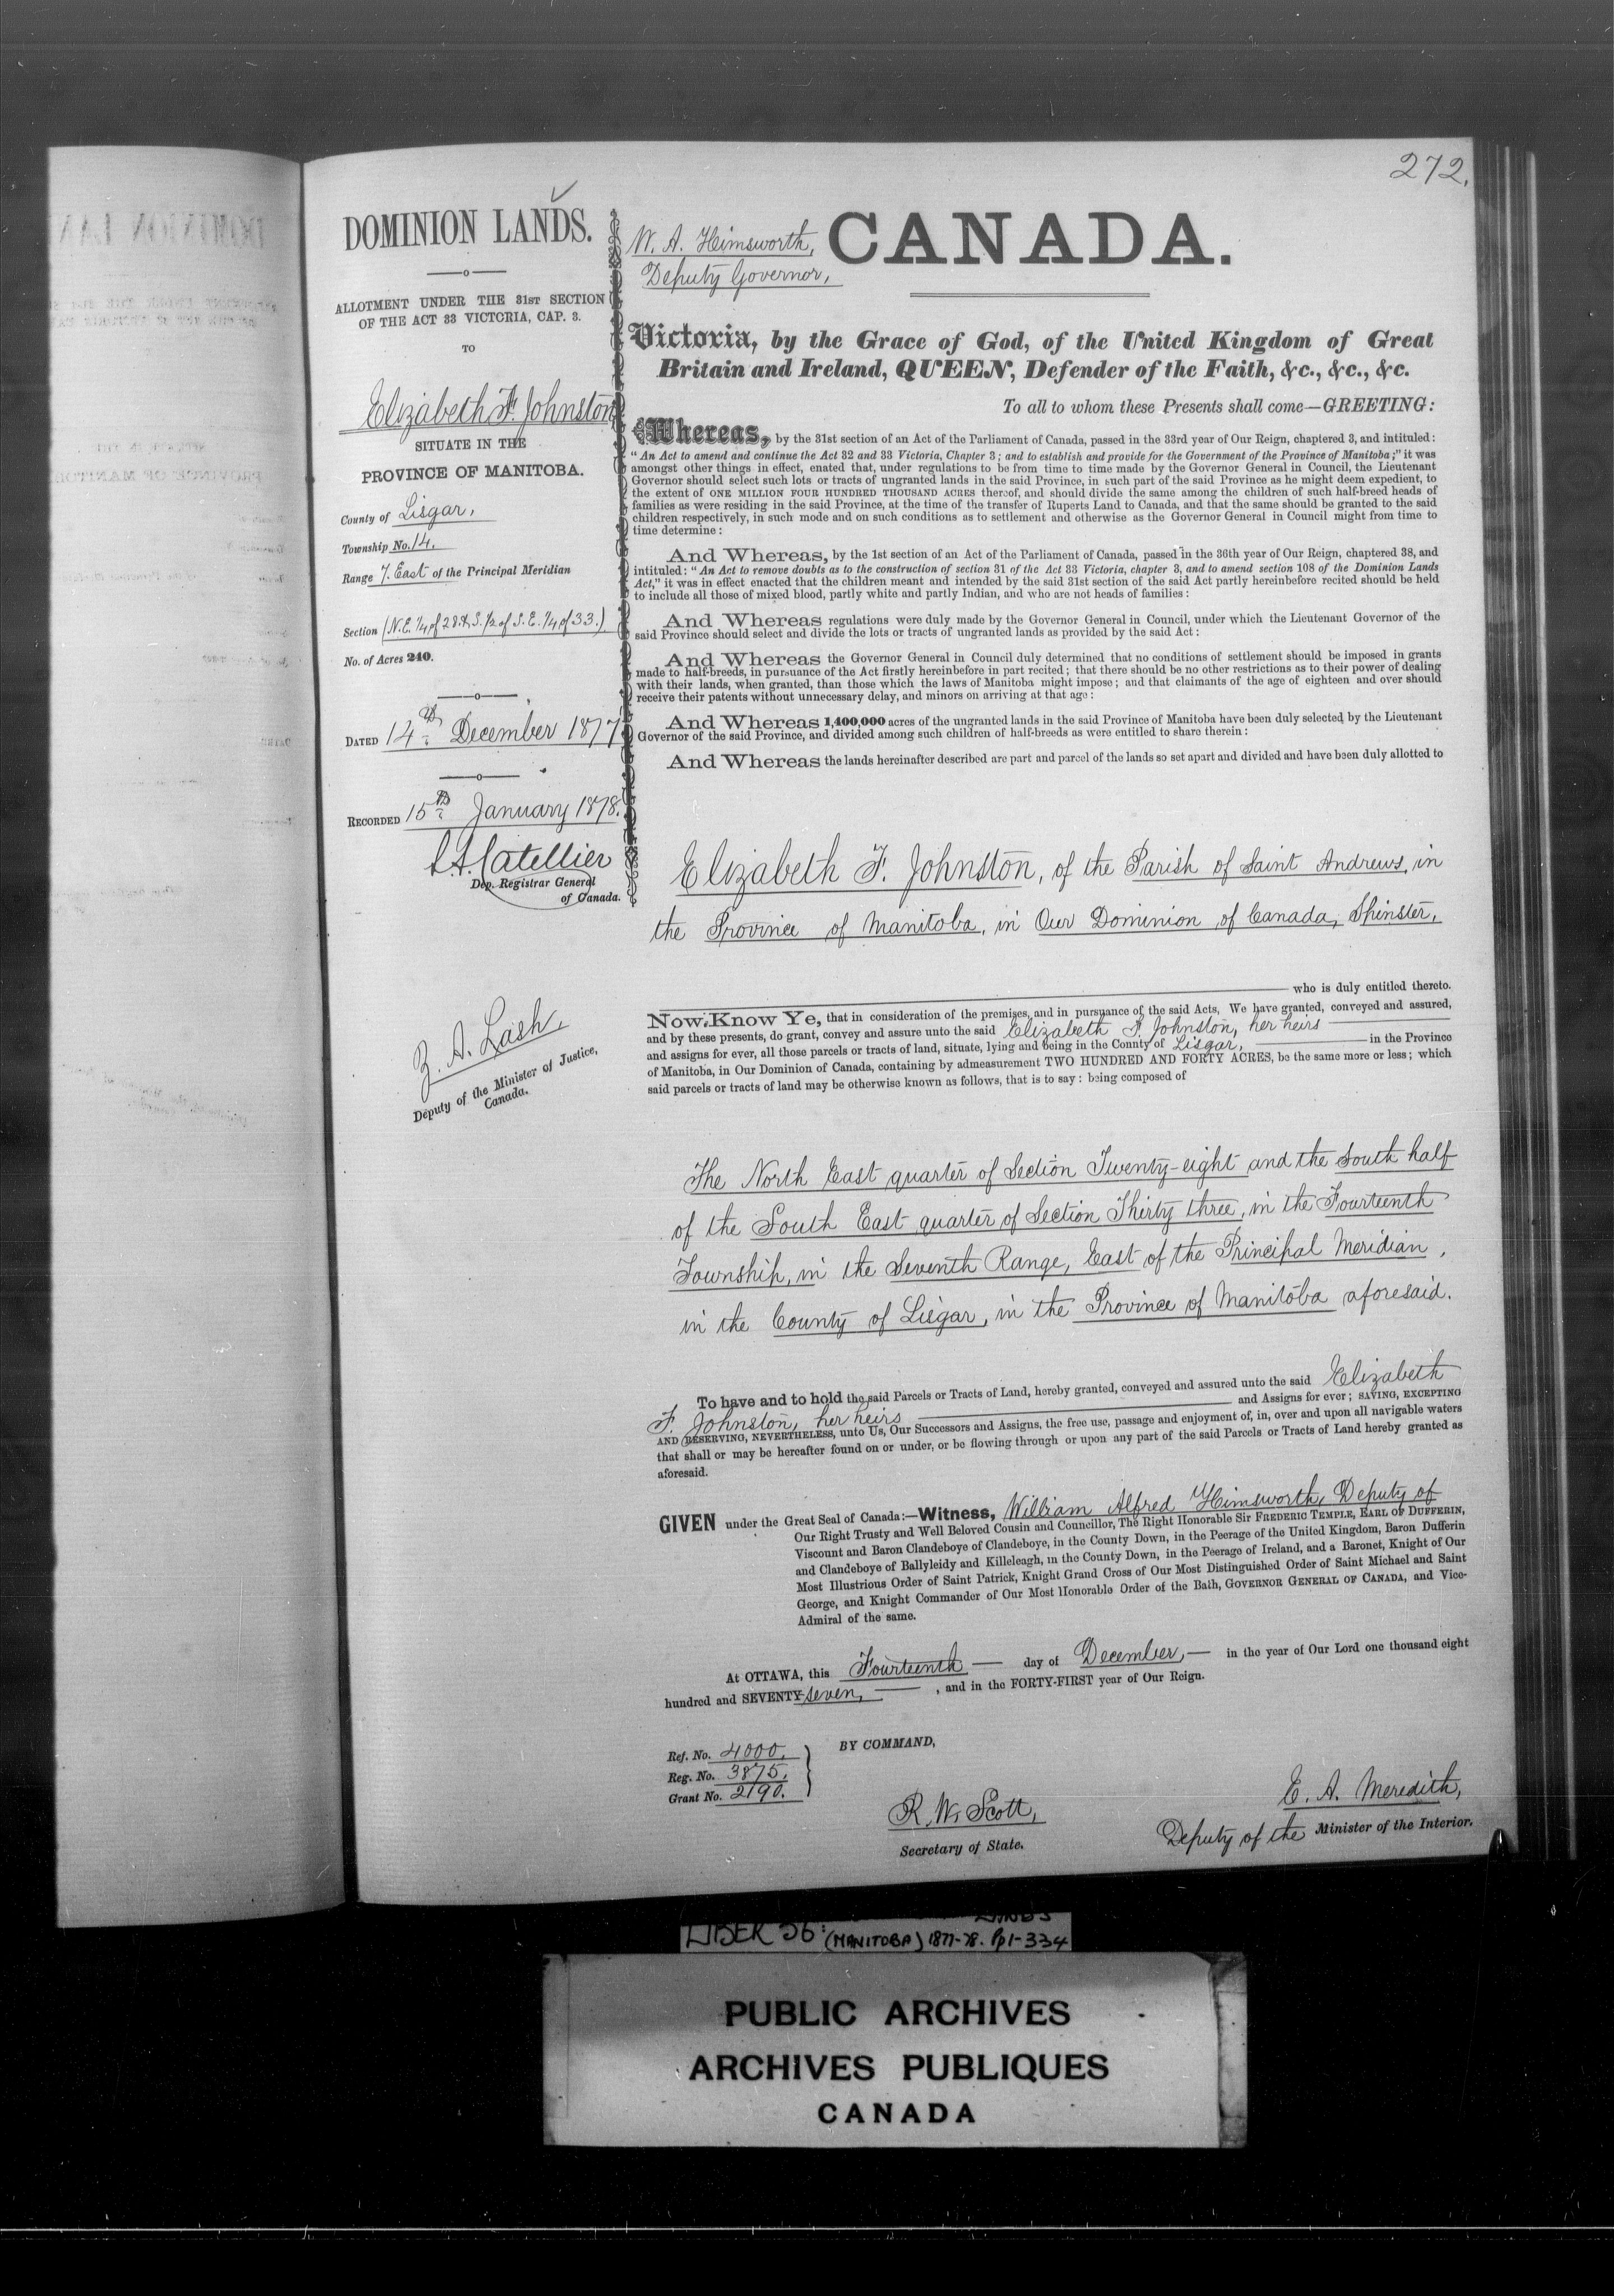 272.
DOMINION LANDS.
ALLOTMENT UNDER THE 31ST SECTION
OF THE ACT 33 VICTORIA, CAP. 3.
TO
Elizabeth F. Johnston
SITUATE IN THE
PROVINCE OF MANITOBA.
County of Lisgar,
Township No. 14.
Range 7. East of the Principal Meridian
Section (N.E. 1/4 of 28 & S. 1/2 of S.E. 1/4 of 33.)
No. of Acres 240.
DATED 14th December 1877
RECORDED 15th January 1878.
L.A. Catellier
Dep. Registrar General
of Canada.
Z. A. Lash,
Deputy of the Minister of Justice,
Canada.
W. A. Himsworth,
Deputy Governor,
CANADA.
Victoria, by the Grace of God, of the United Kingdom of Great
Britain and Ireland, QUEEN, Defender of the Faith, &c., &c., &c.
To all to whom these Presents shall come—GREETING:
Whereas, by the 31st section of an Act of the Parliament of Canada, passed in the 33rd year of Our Reign, chaptered 3, and intituled:
"An Act to amend and continue the Act 32 and 33 Victoria, Chapter 3; and to establish and provide for the Government of the Province of Manitoba;" it was
amongst other things in effect, enated that, under regulations to be from time to time made by the Governor General in Council, the Lieutenant
Governor should select such lots or tracts of ungranted lands in the said Province, in such part of the said Province as he might deem expedient, to
the extent of ONE MILLION FOUR HUNDRED THOUSAND ACRES thereof, and should divide the same among the children of such half-breed heads of
families as were residing in the said Province, at the time of the transfer of Ruperts Land to Canada, and that the same should be granted to the said
children respectively, in such mode and on such conditions as to settlement and otherwise as the Governor General in Council might from time to
time determine:
And Whereas, by the 1st section of an Act of the Parliament of Canada, passed in the 36th year of Our Reign, chaptered 38, and
intituled: "An Act to remove doubts as to the construction of section 31 of the Act 33 Victoria, chapter 3, and to amend section 108 of the Dominion Lands
Act," it was in effect enacted that the children meant and intended by the said 31st section of the said Act partly hereinbefore recited should be held
to include all those of mixed blood, partly white and partly Indian, and who are not heads of families:
And Whereas regulations were duly made by the Governor General in Council, under which the Lieutenant Governor of the
said Province should select and divide the lots or tracts of ungranted lands as provided by the said Act:
And Whereas the Governor General in Council duly determined that no conditions of settlement should be imposed in grants
made to half-breeds, in pursuance of the Act firstly hereinbefore in part recited; that there should be no other restrictions as to their power of dealing
with their lands, when granted, than those which the laws of Manitoba might impose; and that claimants of the age of eighteen and over should
receive their patents without unnecessary delay, and minors on arriving at that age:
And Whereas 1,400,000 acres of the ungranted lands in the said Province of Manitoba have been duly selected by the Lieutenant
Governor of the said Province, and divided among such children of half-breeds as were entitled to share therein:
And Whereas the lands hereinafter described are part and parcel of the lands so set apart and divided and have been duly allotted to
Elizabeth F. Johnston, of the Parish of Saint Andrews, in
the Province of Manitoba, in Our Dominion of Canada, Spinster,
who is duly entitled thereto.
Now Know Ye, that in consideration of the premises, and in pursuance of the said Acts, We have granted, conveyed and assured,
and by these presents, do grant, convey and assure unto the said Elizabeth F. Johnston, her heirs
and assigns for ever, all those parcels or tracts of land, situate, lying and being in the County of Lisgar, in the Province
of Manitoba, in Our Dominion of Canada, containing by admeasurement TWO HUNDRED AND FORTY ACRES, be the same more or less; which
said parcels or tracts of land may be otherwise known as follows, that is to say: being composed of
The North East quarter of Section Twenty-eight and the South half
of the South East quarter of Section Thirty three, in the Fourteenth
Township, in the Seventh Range, East of the Principal Meridian,
in the County of Lisgar, in the Province of Manitoba aforesaid.
To have and to hold the said Parcels or Tracts of Land, hereby granted, conveyed and assured unto the said Elizabeth
F. Johnston, her heirs and Assigns for ever; SAVING, EXCEPTING
AND RESERVING, NEVERTHELESS, unto Us, Our Successors and Assigns, the free use, passage and enjoyment of, in, over and upon all navigable waters
that shall or may be hereafter found on or under, or be flowing through or upon any part of the said Parcels or Tracts of Land hereby granted as
aforesaid.
GIVEN under the Great Seal of Canada:—Witness, William Alfred Himsworth, Deputy of
Our Right Trusty and Well Beloved Cousin and Councillor, The Right Honorable Sir FREDERIC TEMPLE, EARL OF DUFFERIN,
Viscount and Baron Clandeboye of Clandeboye, in the County Down, in the Peerage of the United Kingdom, Baron Dufferin
and Clandeboye of Ballyleidy and Killeleagh, in the County Down, in the Peerage of Ireland, and a Baronet, Knight of Our
Most Illustrious Order of Saint Patrick, Knight Grand Cross of Our Most Distinguished Order of Saint Michael and Saint
George, and Knight Commander of Our Most Honorable Order of the Bath, GOVERNOR GENERAL OF CANADA, and Vice-
Admiral of the same.
At OTTAWA, this Fourteenth day of December, in the year of Our Lord one thousand eight
hundred and SEVENTY-seven, , and in the FORTY-FIRST year of Our Reign.
Ref. No. 4000.
Reg. No. 3875.
Grant No. 2190.
BY COMMAND,
R. W. Scott,
Secretary of State.
E. A. Meredith,
Deputy of the Minister of the Interior.
LIBER 56: LANDS
(MANITOBA) 1877-78. Pp1-334
PUBLIC ARCHIVES
ARCHIVES PUBLIQUES
CANADA